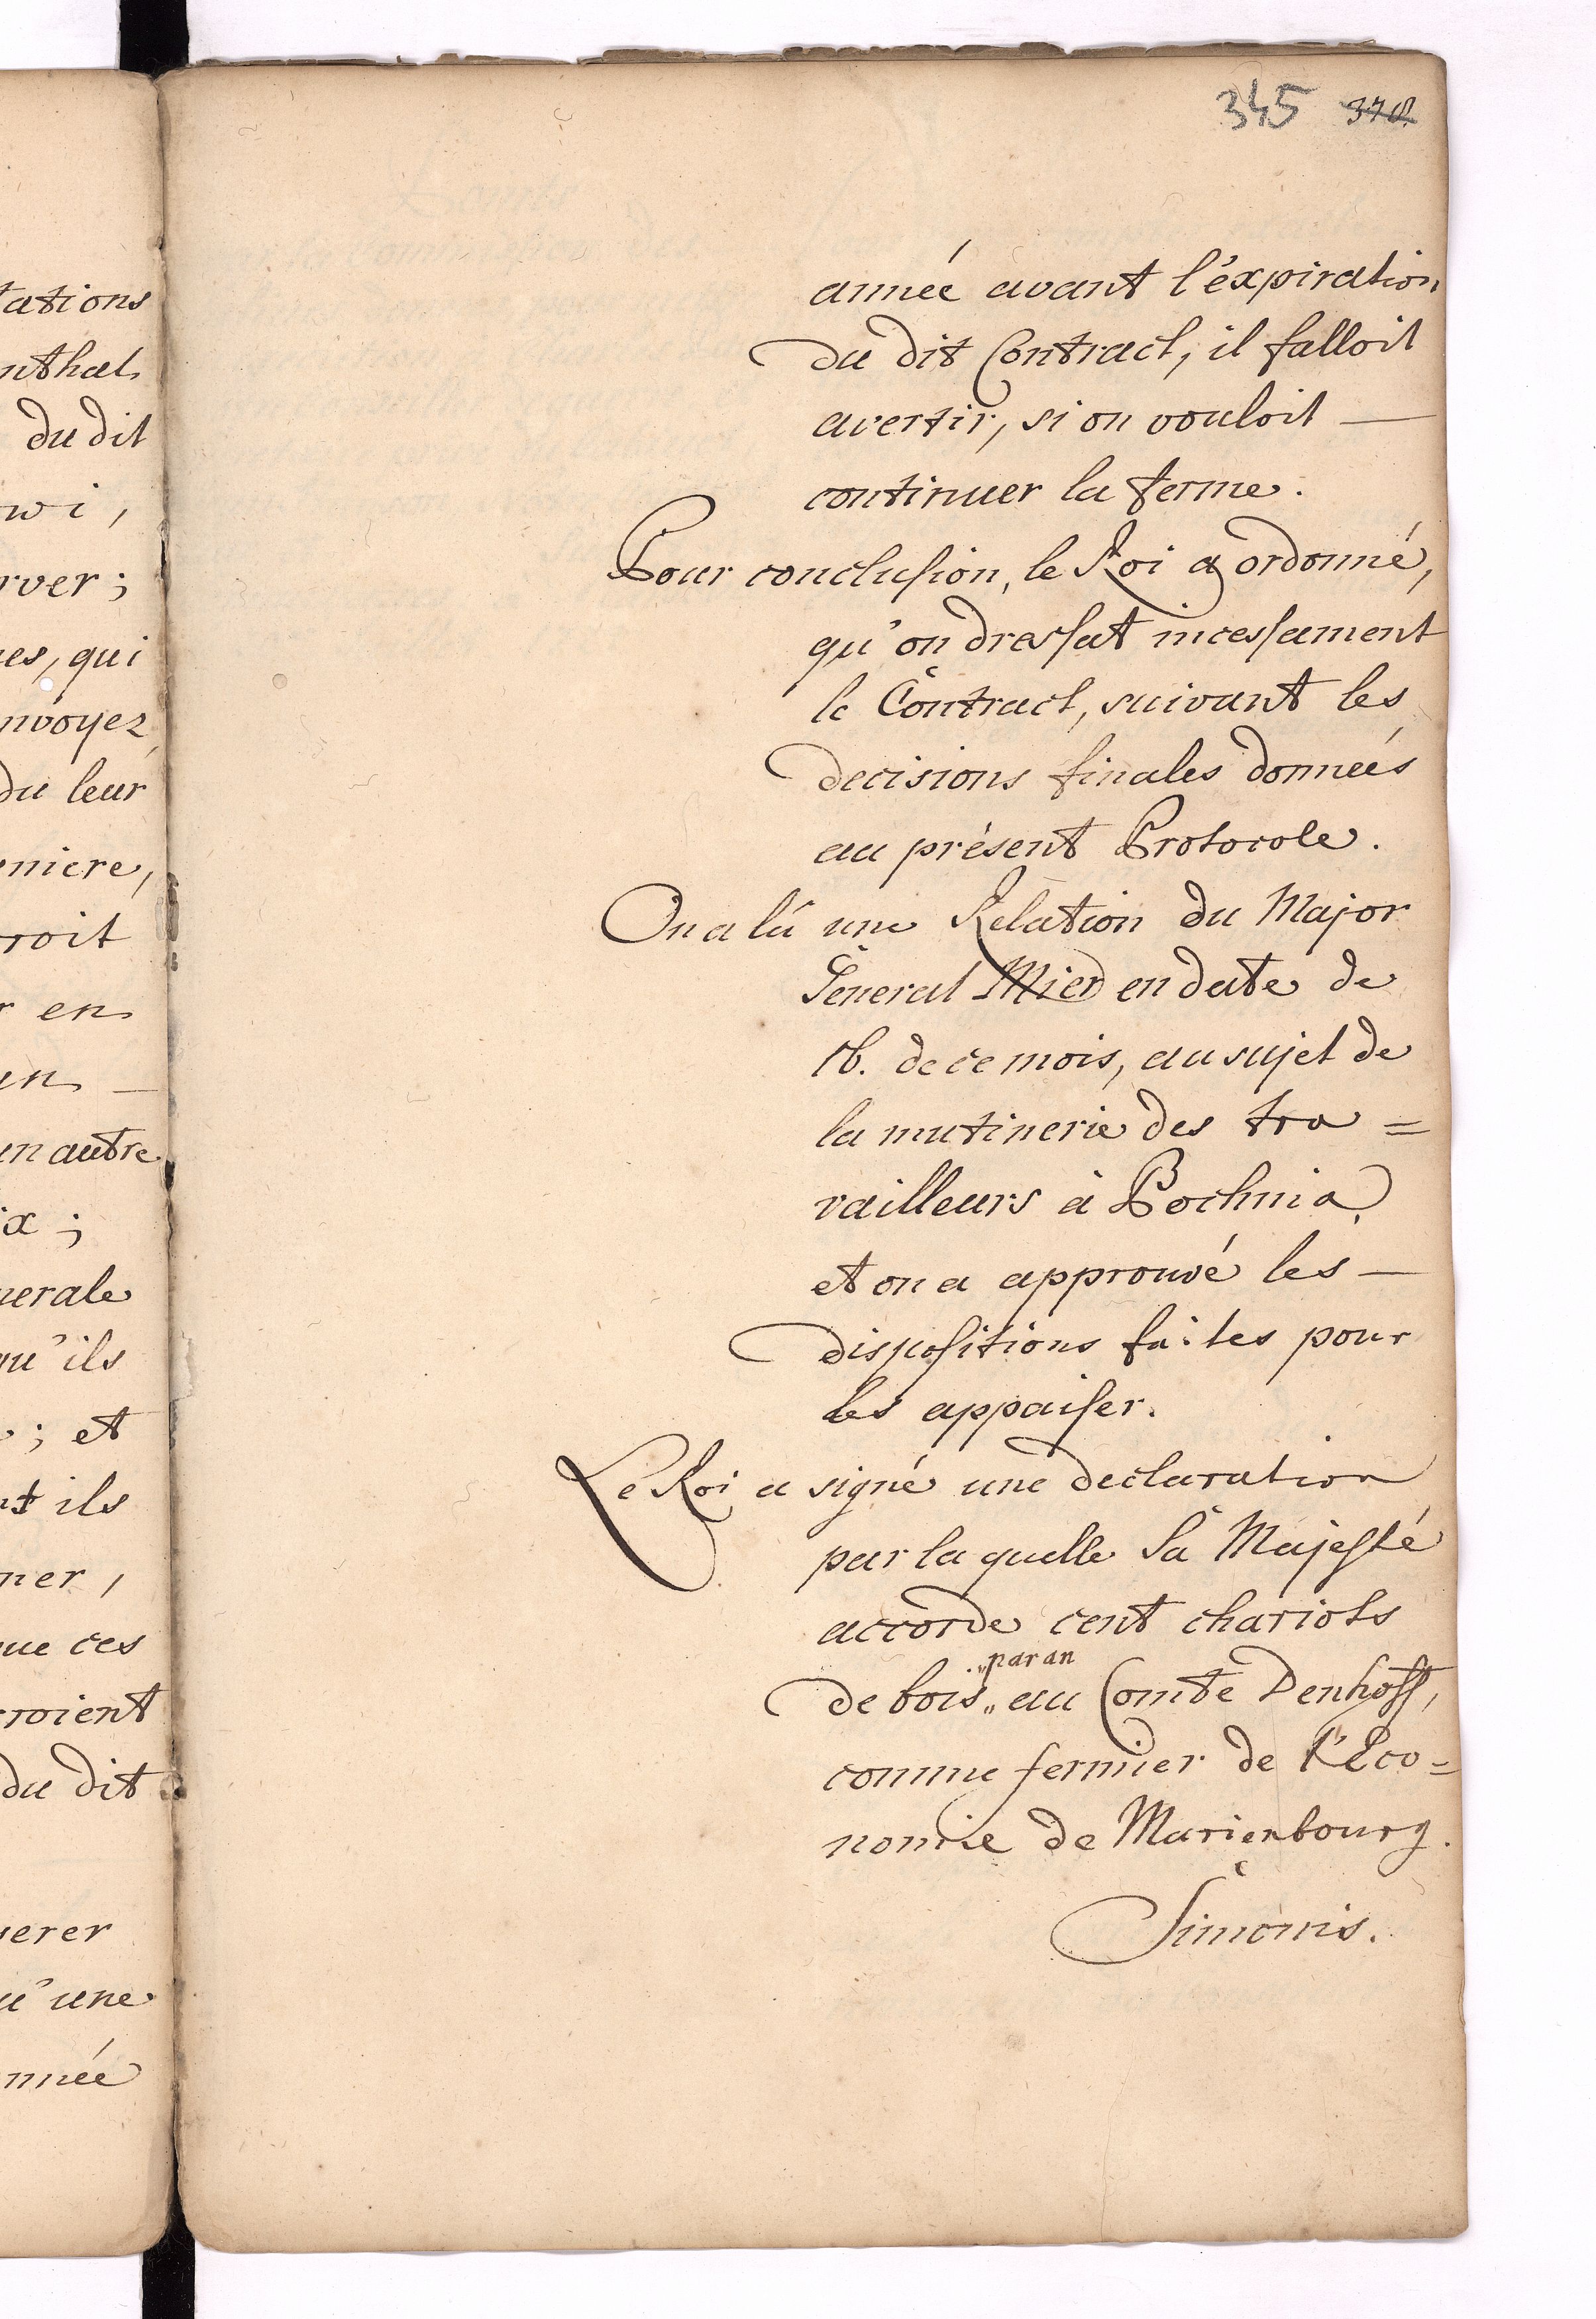 tations
nthal
du dit
wi,
rver;
es, qui
nvoyez
du leur
niere,
roit
r en
un —
un autre
ix;
nerale
qu'ils
; et
nt ils
ner,
que ces
roient
du dit
erer
u'une
nnée
345 378.
année avant l'éxpiration
du dit Contract, il falloit
avertir, si on vouloit —
continuer la ferme.
Pour conclusion, le Roi a ordonné,
qu'on dressat incessament
le Contract, suivant les
decisions finales donneés
au présent Protocole.
On a lû une Relation du Major
General Mier en date de
16. de ce mois, au sujet de
la mutinerie des tra=
vailleurs à Bochnia,
et on a approuvé les —
dispositions faites pour
les appaiser.
Le Roi a signé une declaration
par la quelle Sa Majesté
accorde cent chariots
„par an
de bois „ au Comte Denhoff,
comme fermier de l'Eco=
nomie de Marienbourg.
Simonis.